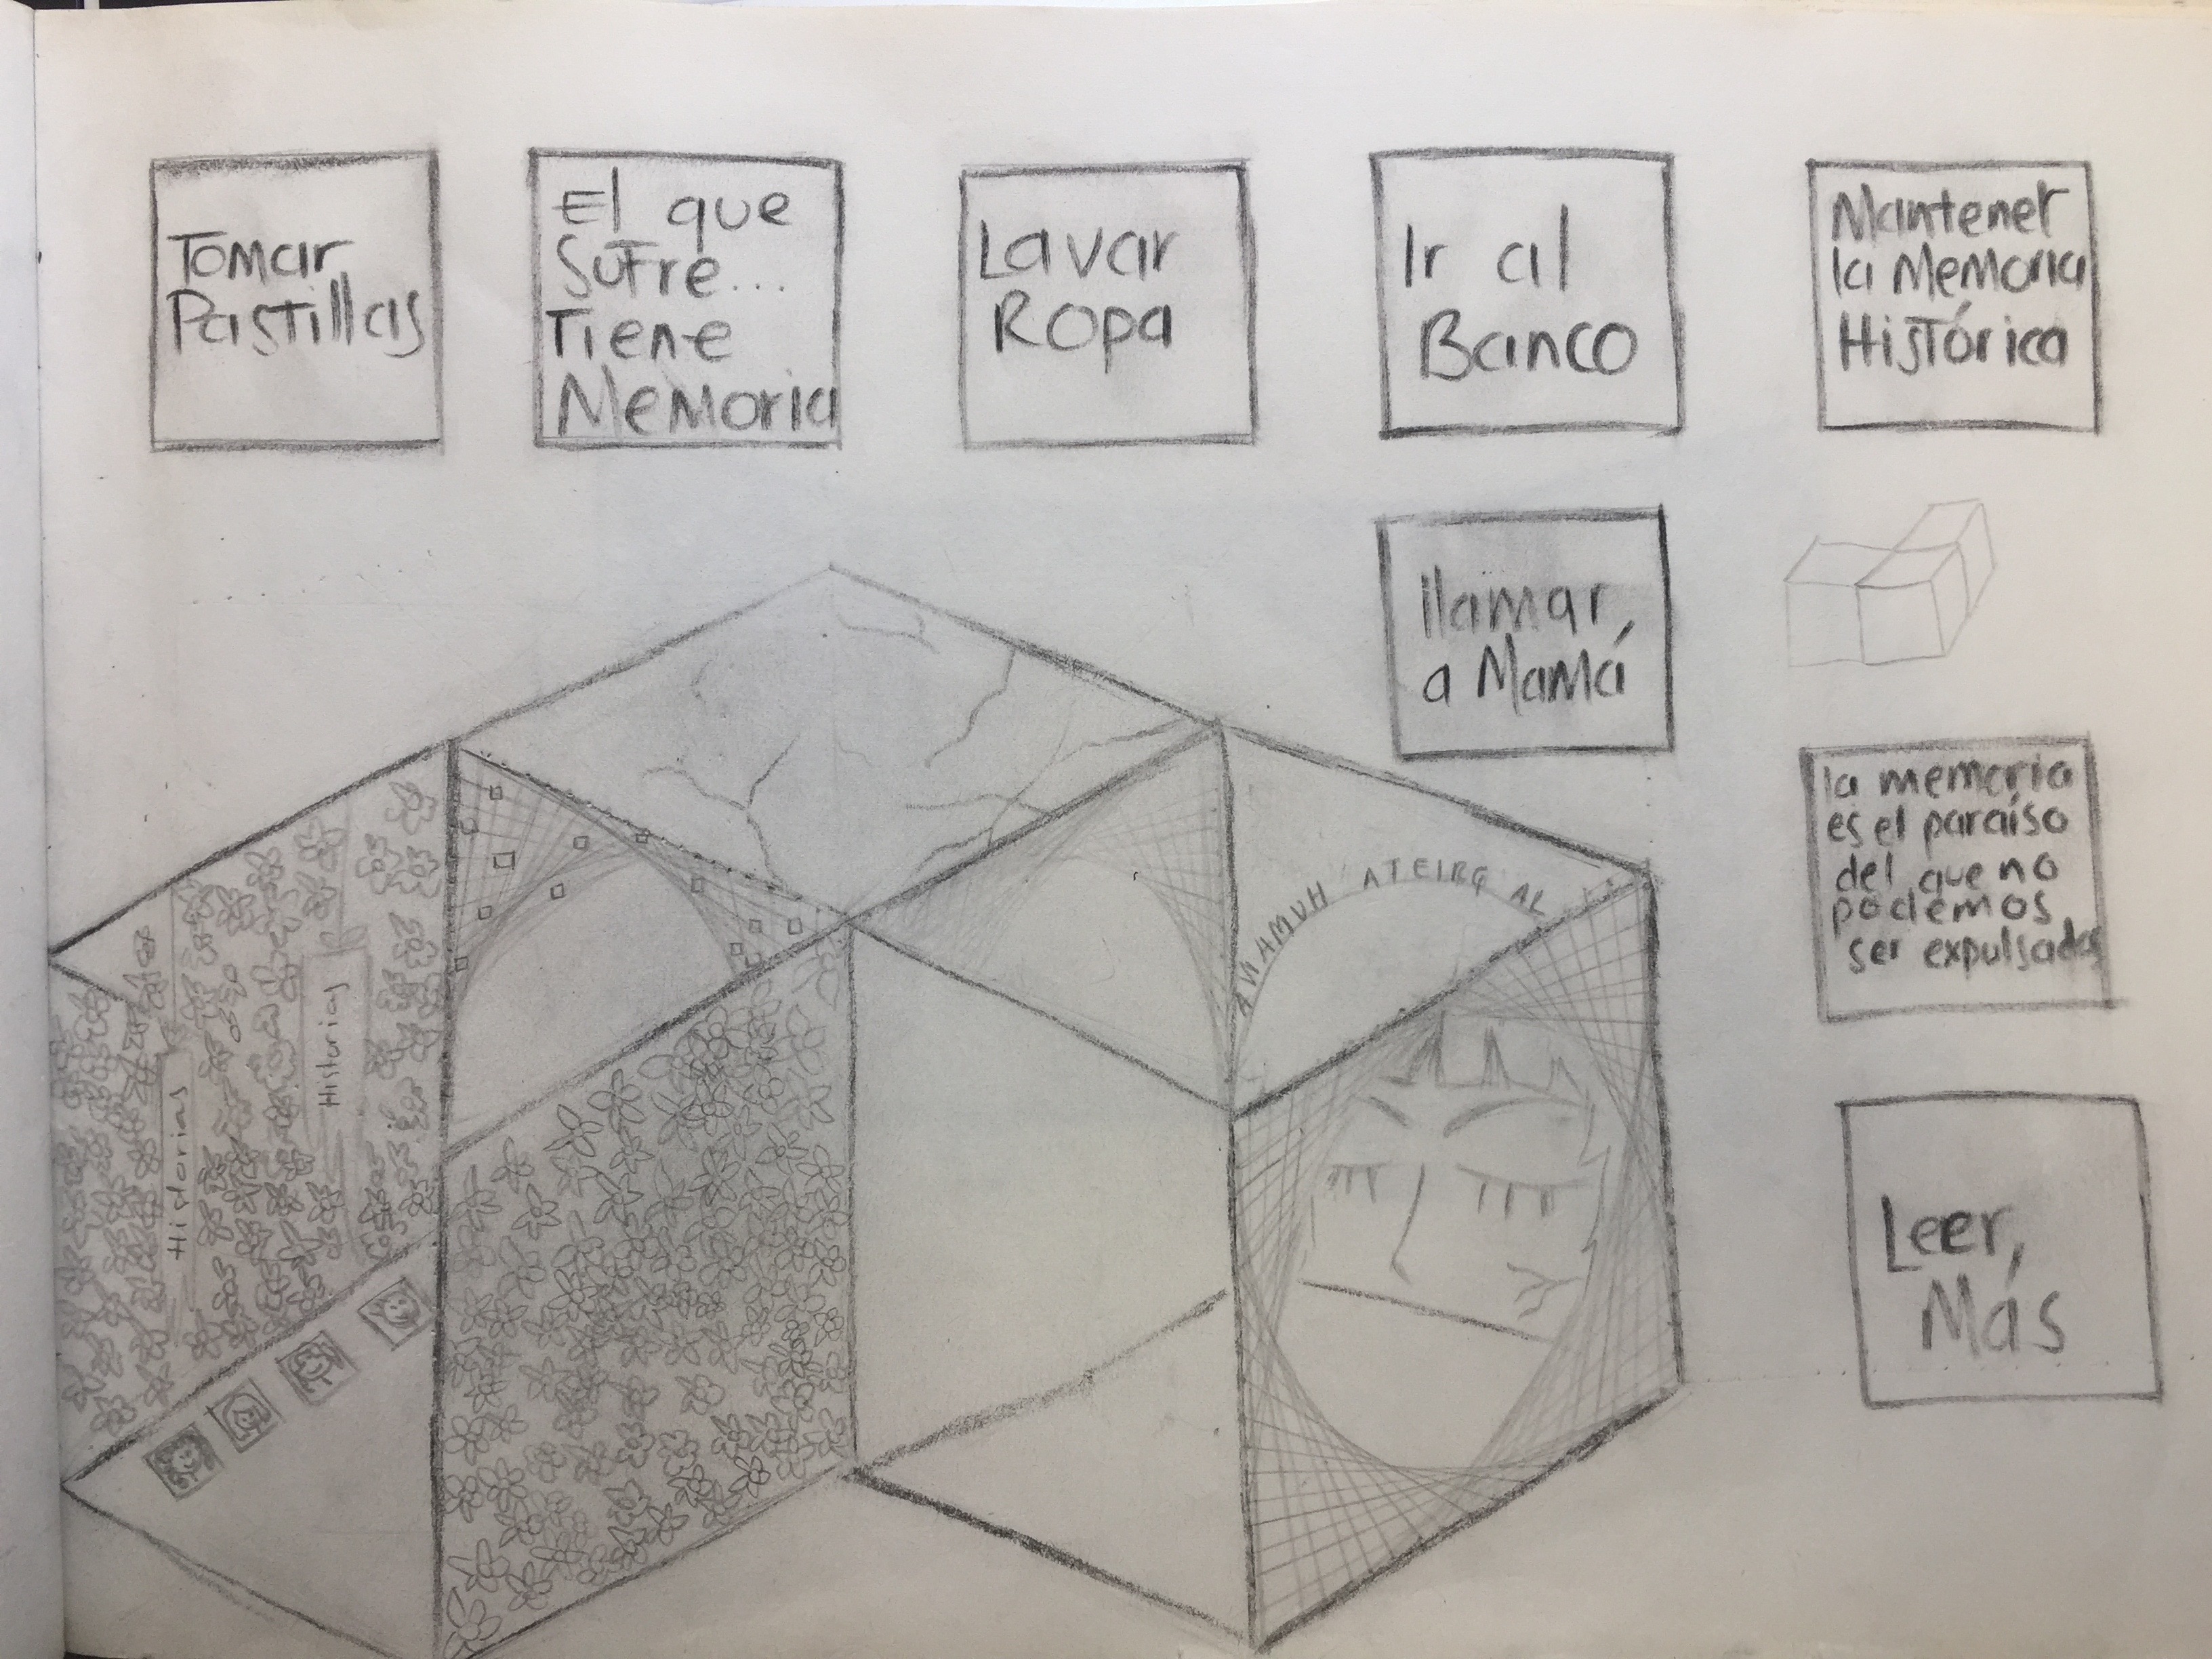 Tomar
Pastillas
El que
Sufre...
Tiene
Memoria
Lavar
Ropa
Ir al
Banco
Mantener
la Memoria
Histórica
llamar,
a Mamá
la memoria
es el paraíso
del que no
podemos
ser expulsados
Leer,
Más
AVAMUH ATEIRG AL
Historias
Historias